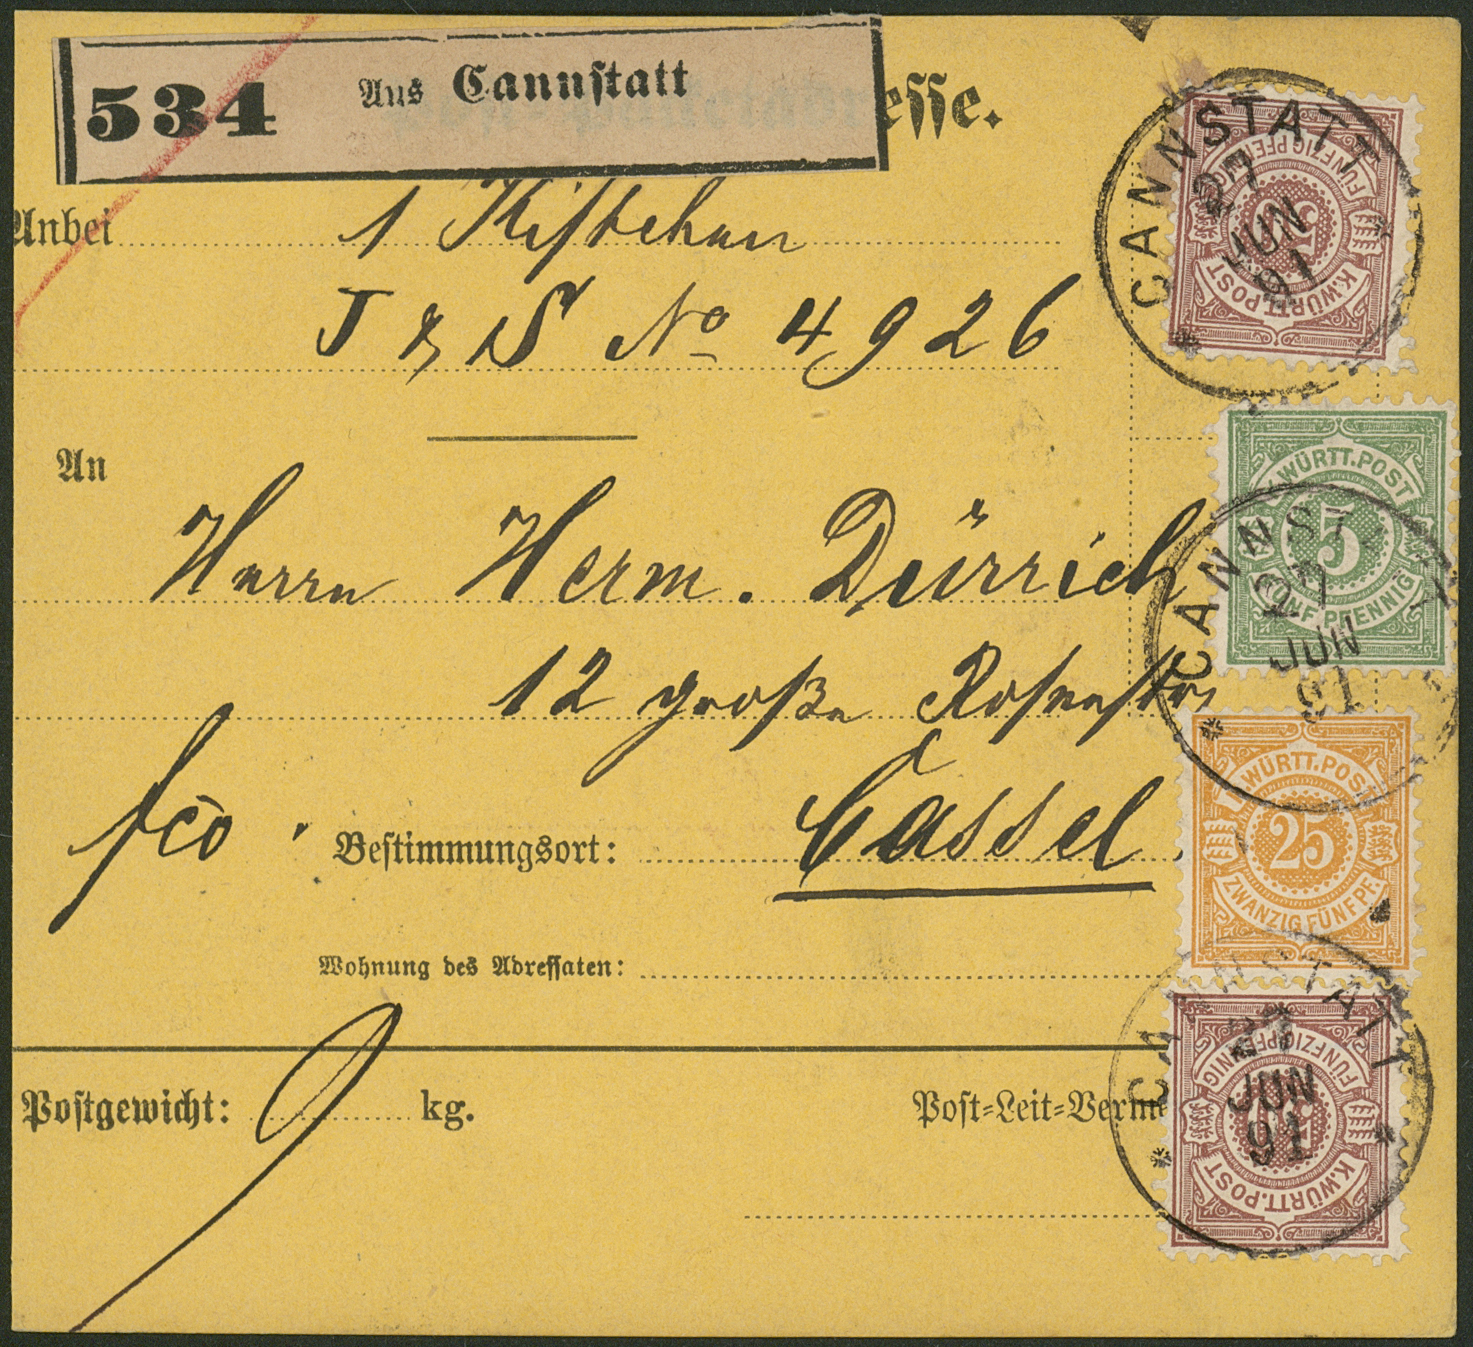 534 Aus Cannstatt
esse.
Anbei 1 Kistchen
J & S No 4926
An
Herrn Herm. Dürrich
12 große Rosenstr
fco. Bestimmungsort: Cassel.
Wohnung des Adressaten:
Postgewicht: 9 kg.
Post-Leit-Verm
CANNSTATT
27
JUN
91
FÜNFZIG PFENNIG
50
K.WÜRTT.POST
K.WÜRTT.POST
5
FÜNF PFENNIG
CANNSTATT
27
JUN
91
K.WÜRTT.POST
25
ZWANZIG FÜNF PF.
CANNSTATT
27
JUN
91
FÜNFZIG PFENNIG
K.WÜRTT.POST